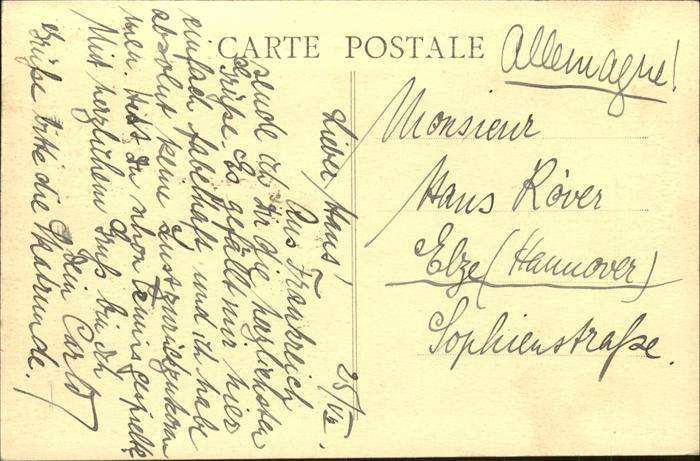 CARTE POSTALE
Allemagne!
Monsieur
Hans Röver
Elze (Hannover)
Sophienstraße.
25/VI.
Lieber Hans!
Aus Frankreich
sende ich Dir die herzlichsten
Grüße. Es gefällt mir hier
einfach fabelhaft und ich habe
absolut keine Lust zurückzukom
men. Hast Du schon Tennis gespielt?
Mit herzlichem Gruß bin ich
Dein Carlo
Grüße bitte die